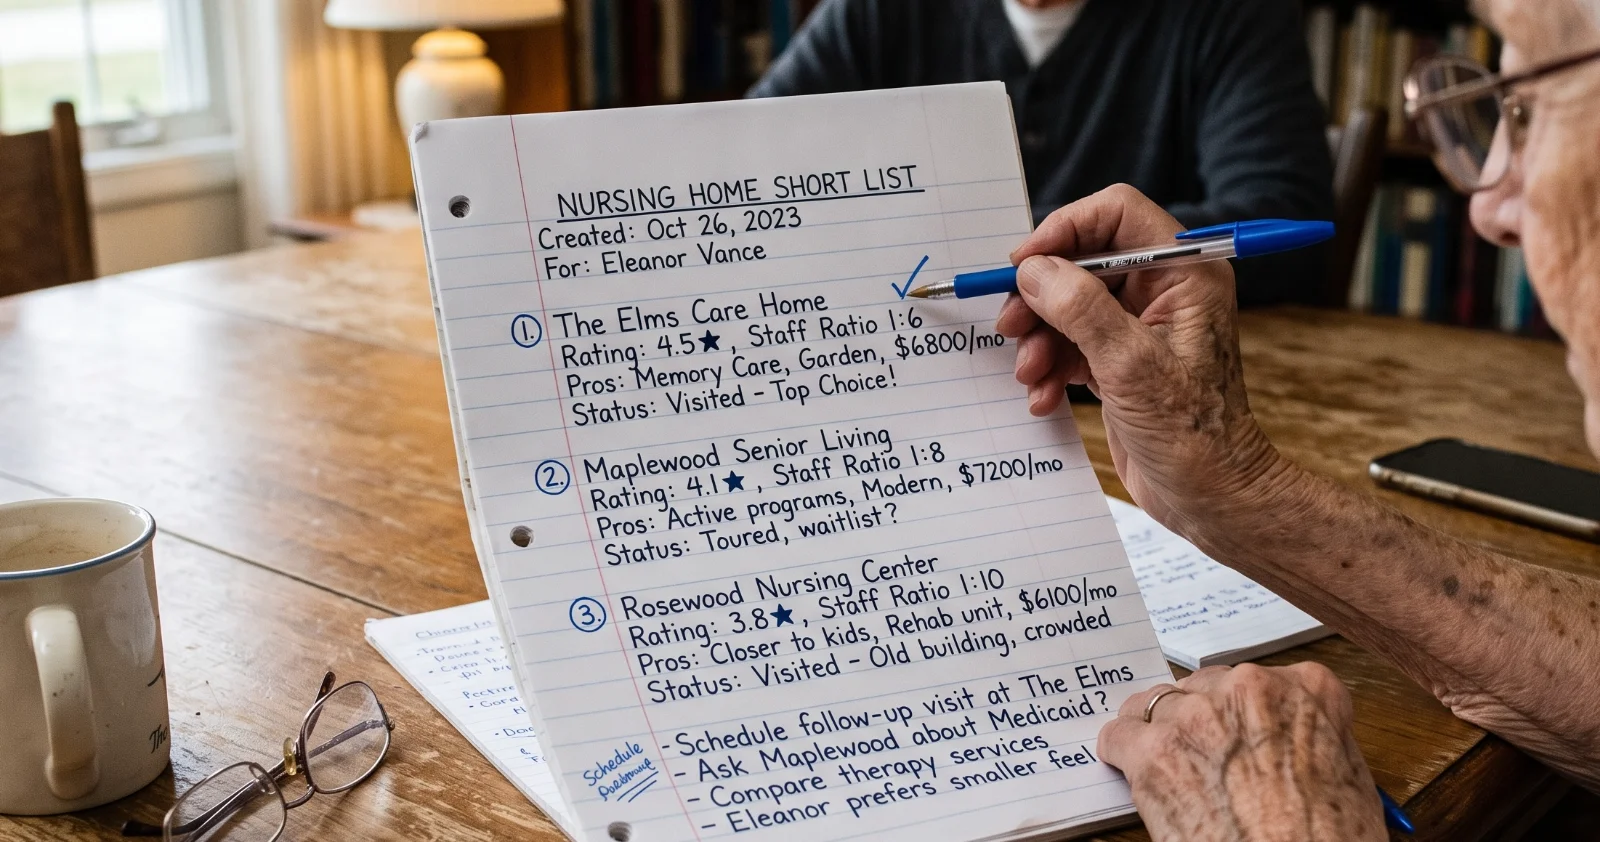 NURSING HOME SHORT LIST
Created: Oct 26, 2023
For: Eleanor Vance
1. The Elms Care Home ✓
Rating: 4.5★, Staff Ratio 1:6
Pros: Memory Care, Garden, $6800/mo
Status: Visited – Top Choice!
2. Maplewood Senior Living
Rating: 4.1★, Staff Ratio 1:8
Pros: Active programs, Modern, $7200/mo
Status: Toured, waitlist?
3. Rosewood Nursing Center
Rating: 3.8★, Staff Ratio 1:10
Pros: Closer to kids, Rehab unit, $6100/mo
Status: Visited – Old building, crowded
- Schedule follow-up visit at The Elms
- Ask Maplewood about Medicaid?
- Compare therapy services
- Eleanor prefers smaller feel
Schedule
The